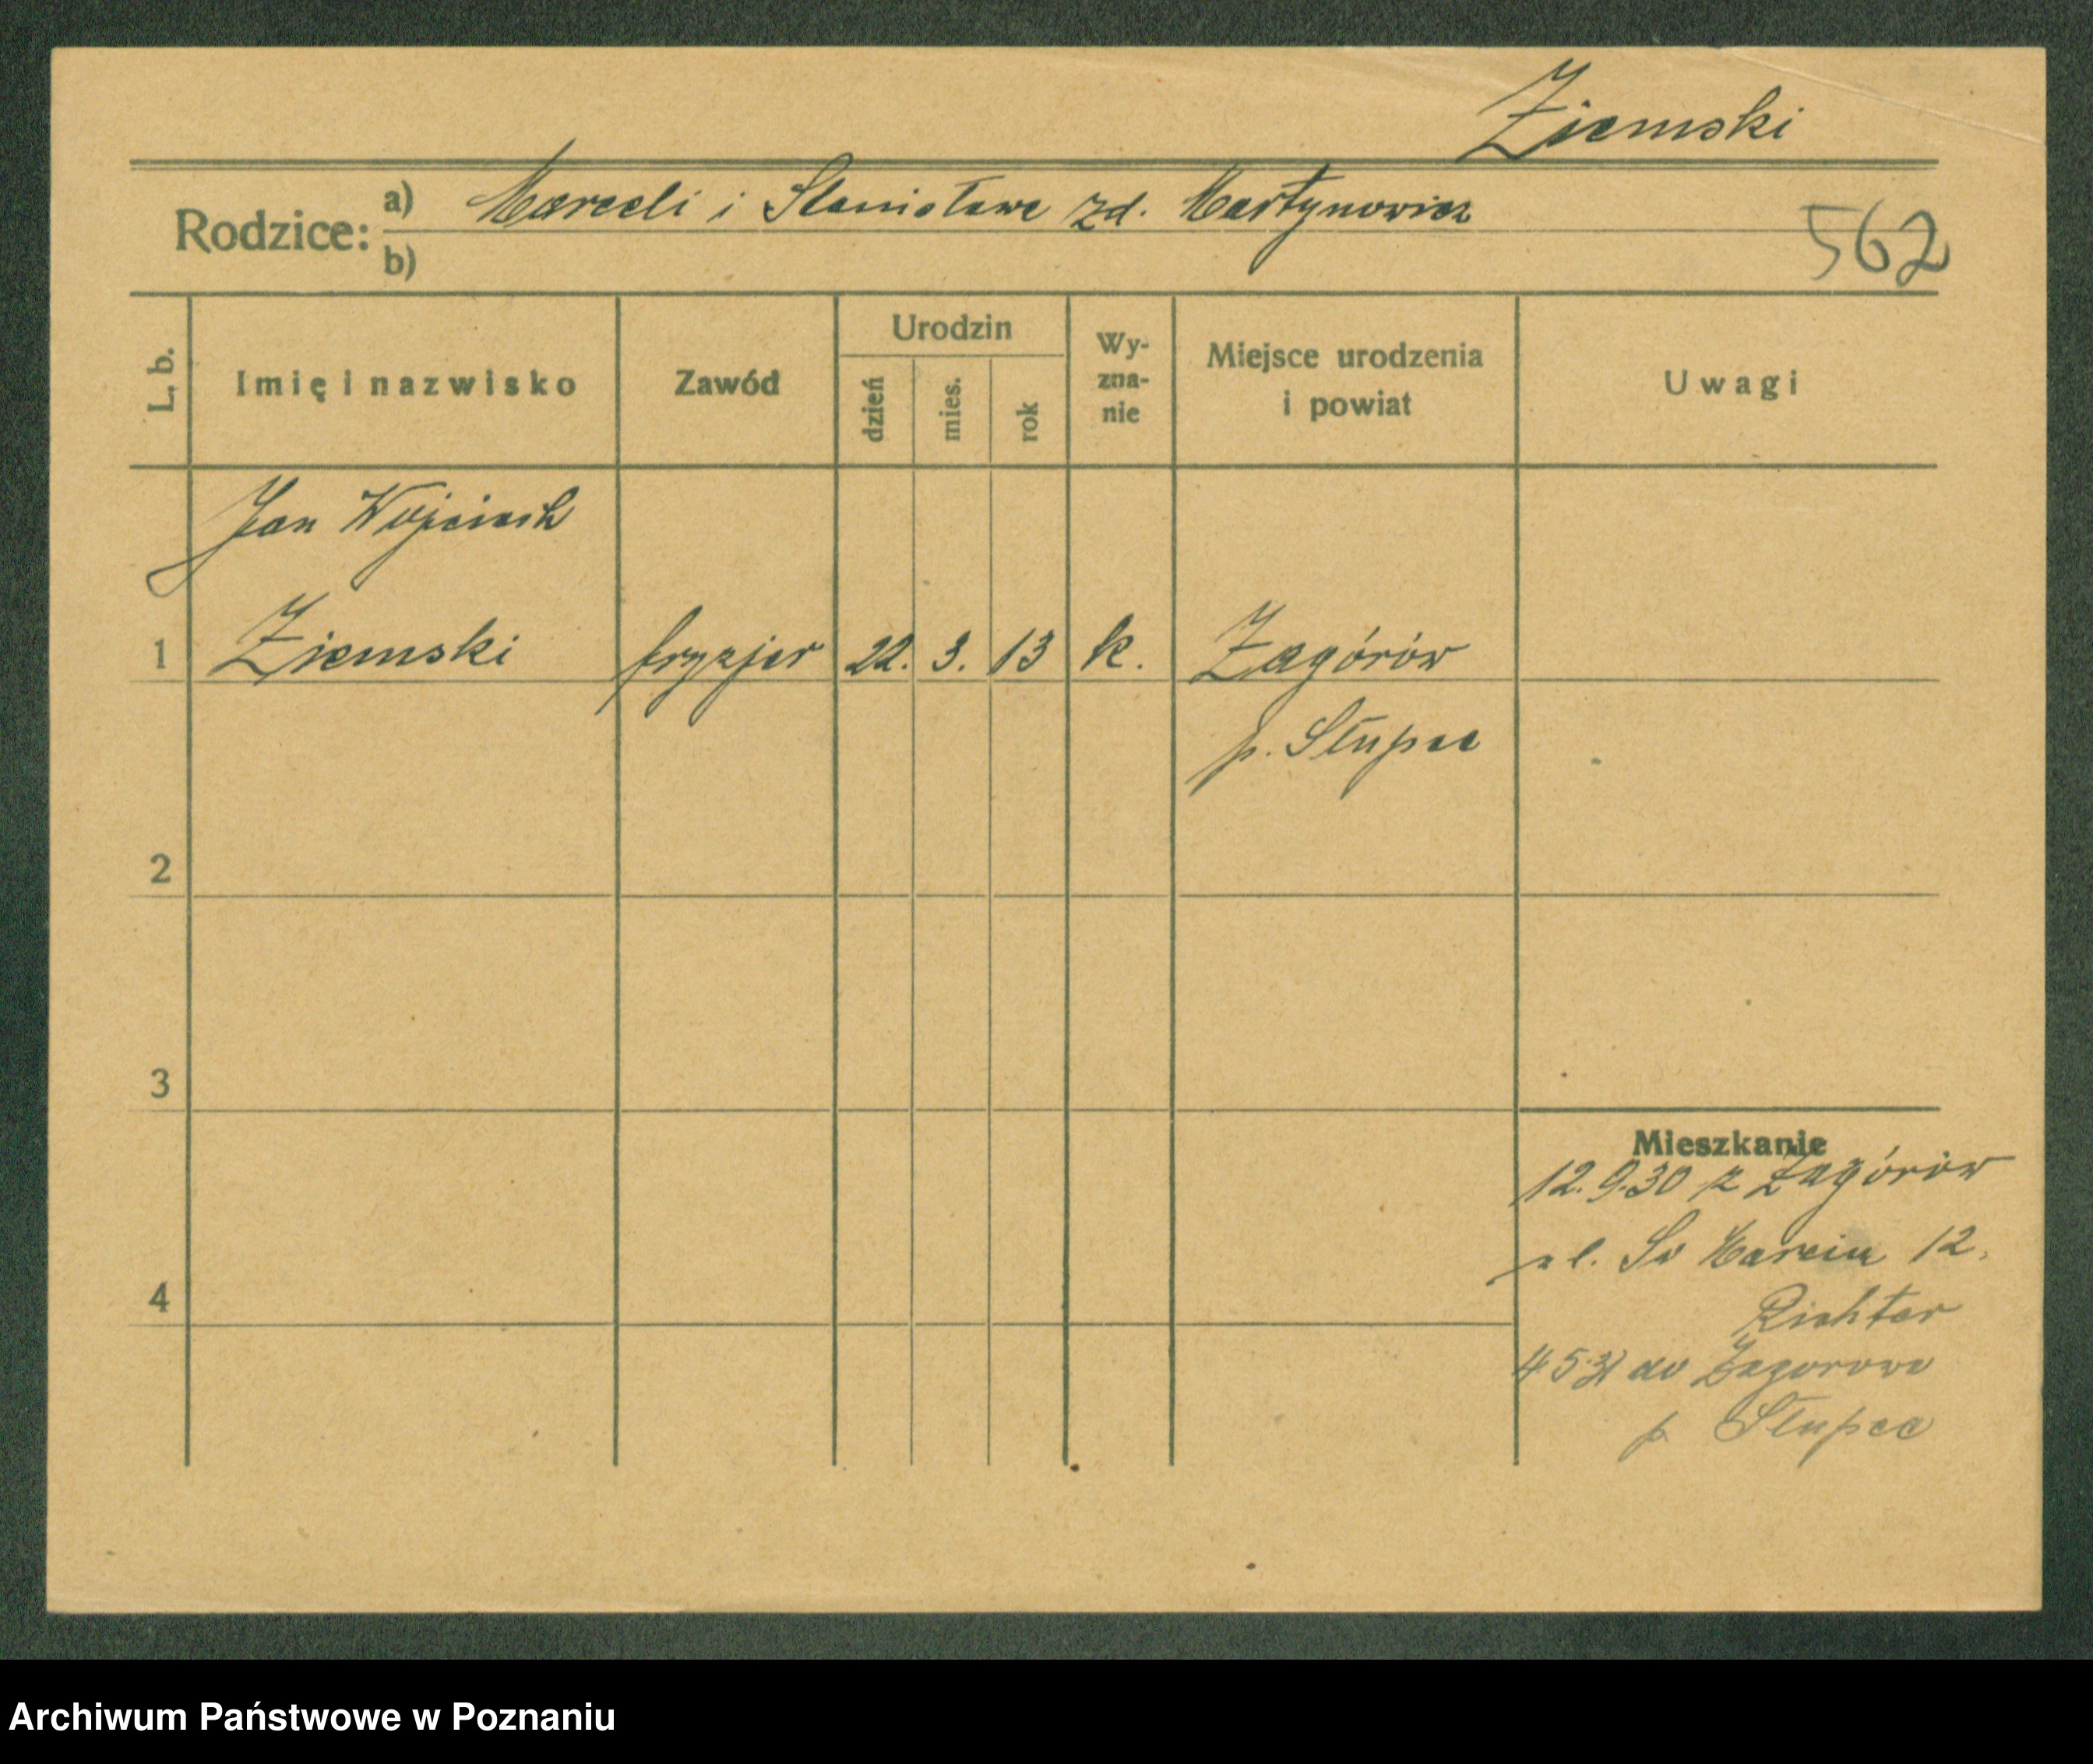 Ziemski
Rodzice: a) Marceli i Stanisława zd. Martynowicz
b)
562
L. b.
Imię i nazwisko
Zawód
Urodzin
dzień
mies.
rok
Wy-
zna-
nie
Miejsce urodzenia
i powiat
Uwagi
Jan Wojciech
1 Ziemski fryzjer 22. 3. 13 k. Zagórów
p. Słupca
2
3
4
Mieszkanie
12.9.30 z Zagórów
ul. Św Marcin 12.
Richter
4 5 31 do Zagorowa
p Słupca
Archiwum Państwowe w Poznaniu